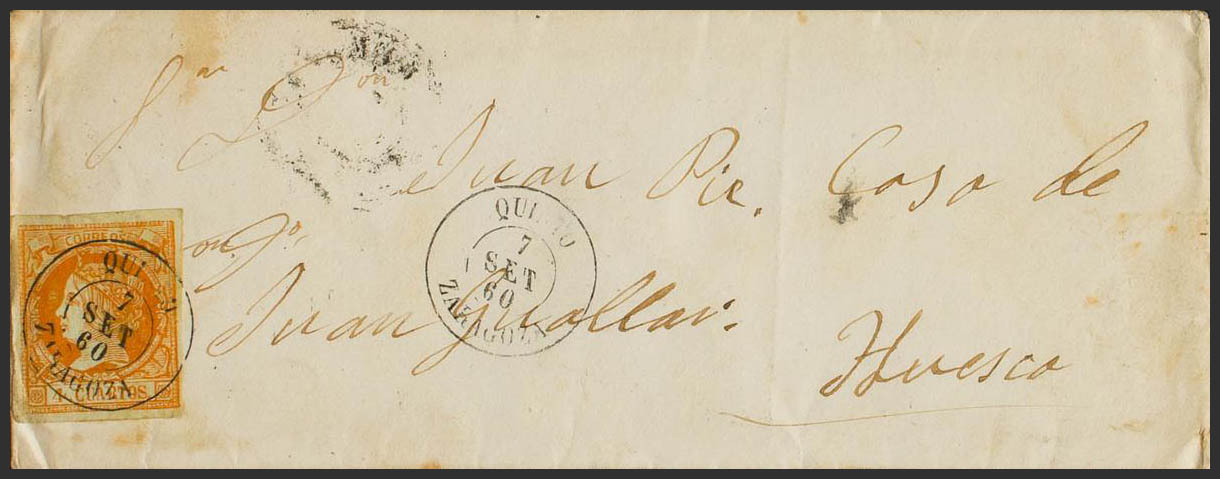 Sr. Dn.
Juan Pie. Casa de
Dn. Jo.
Juan Guallar.
Huesca
QUINTO
7
SET
60
ZARAGOZA
CORREOS
QUINTO
7
1 SET
60
ZARAGOZA
4 CUARTOS